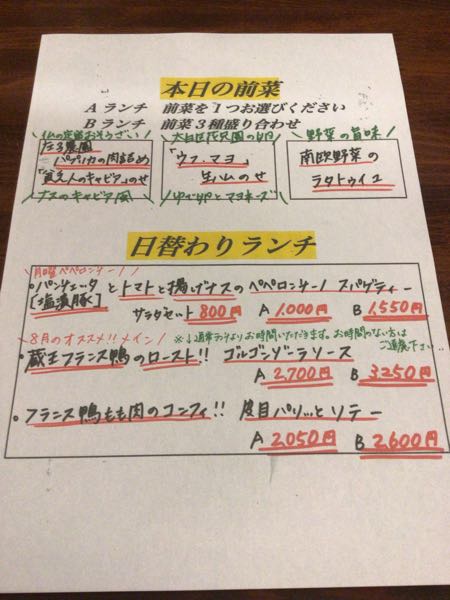 本日の前菜
Aランチ 前菜を1つお選びください
Bランチ 前菜3種盛り合わせ
仏の定番おそうざい
パプリカの肉詰め
「貧乏人のキャビア」のせ
ナスのキャビア風
「ウフ・マヨ」
生ハムのせ
ゆで卵とマヨネーズ
野菜の旨味
南欧野菜の
ラタトゥイユ
日替わりランチ
月曜ペペロンチーノ
・パンチェッタとトマトと揚げナスのペペロンチーノ スパゲティー
[塩漬豚]
サラダセット 800円 A 1,000円 B 1,550円
8月のオススメ!!メイン ※↓通常ランチよりお時間いただきます。お時間のない方は
ご遠慮下さい
・蔵王フランス鴨のロースト!! ゴルゴンゾーラソース
A 2,700円 B 3250円
・フランス鴨もも肉のコンフィ!! 皮目パリッとソテー
A 2050円 B 2,600円